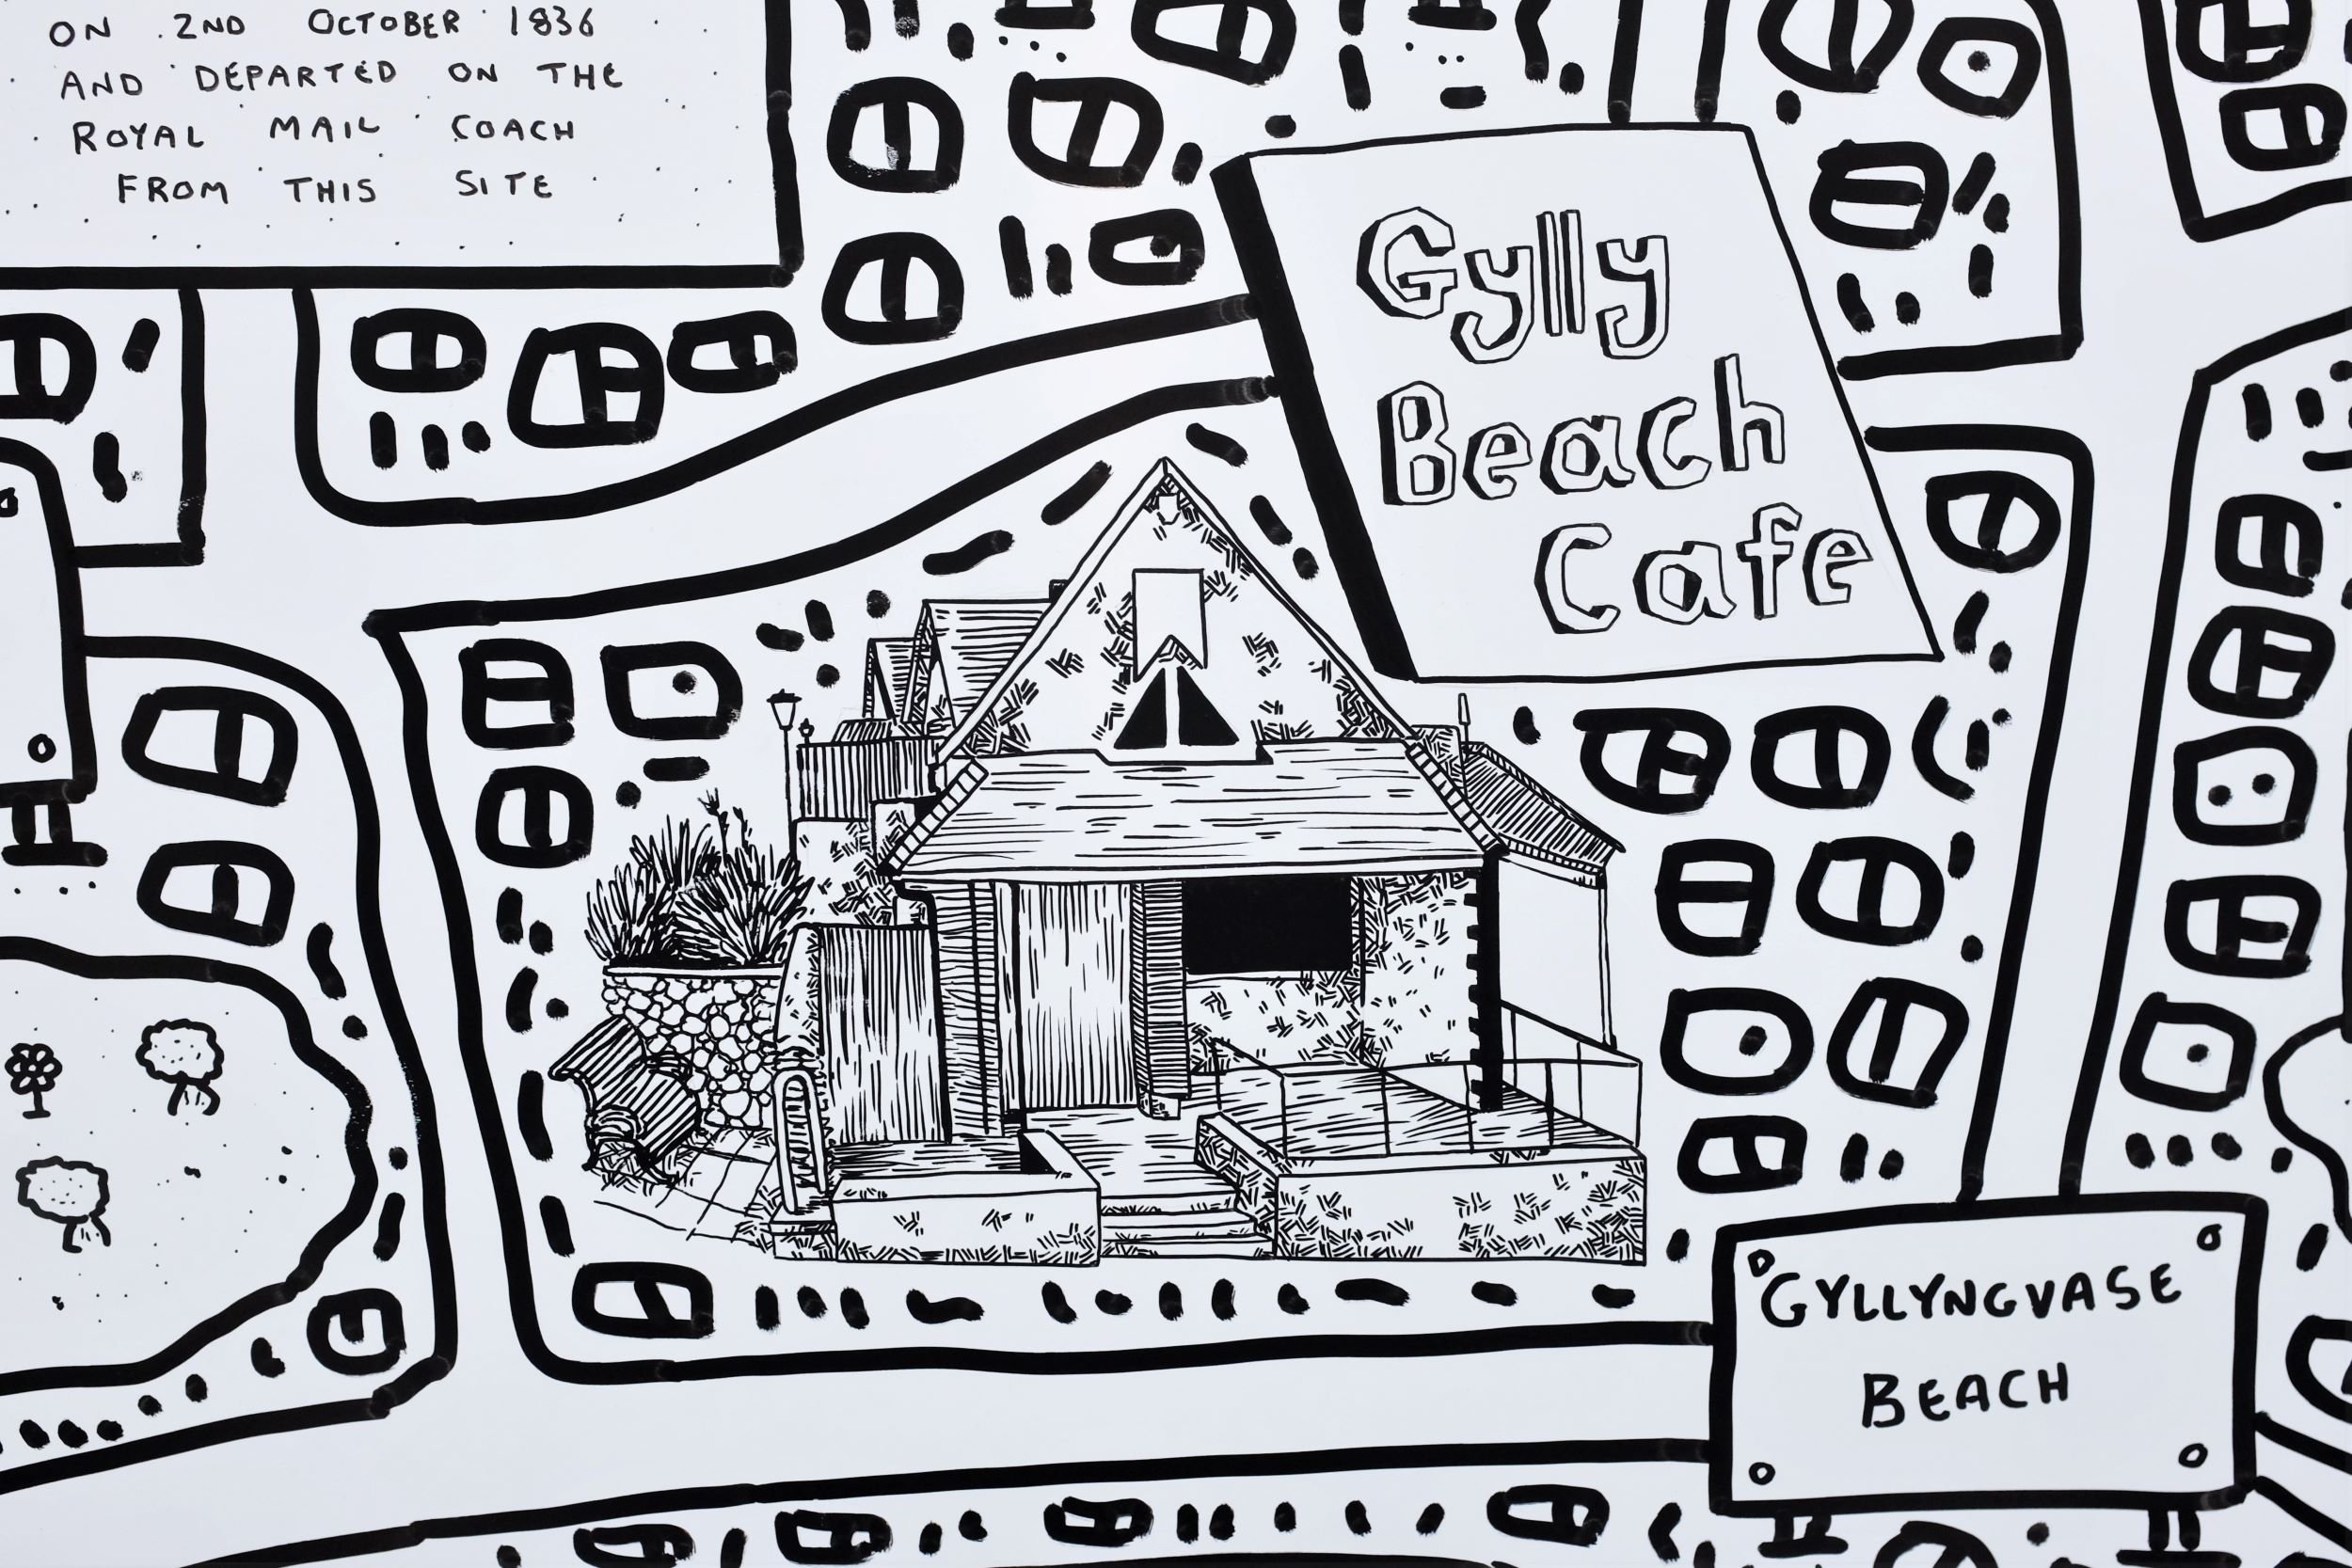 ON 2ND OCTOBER 1836
AND DEPARTED ON THE
ROYAL MAIL COACH
FROM THIS SITE
Gylly
Beach
Cafe
GYLLYNGVASE
BEACH